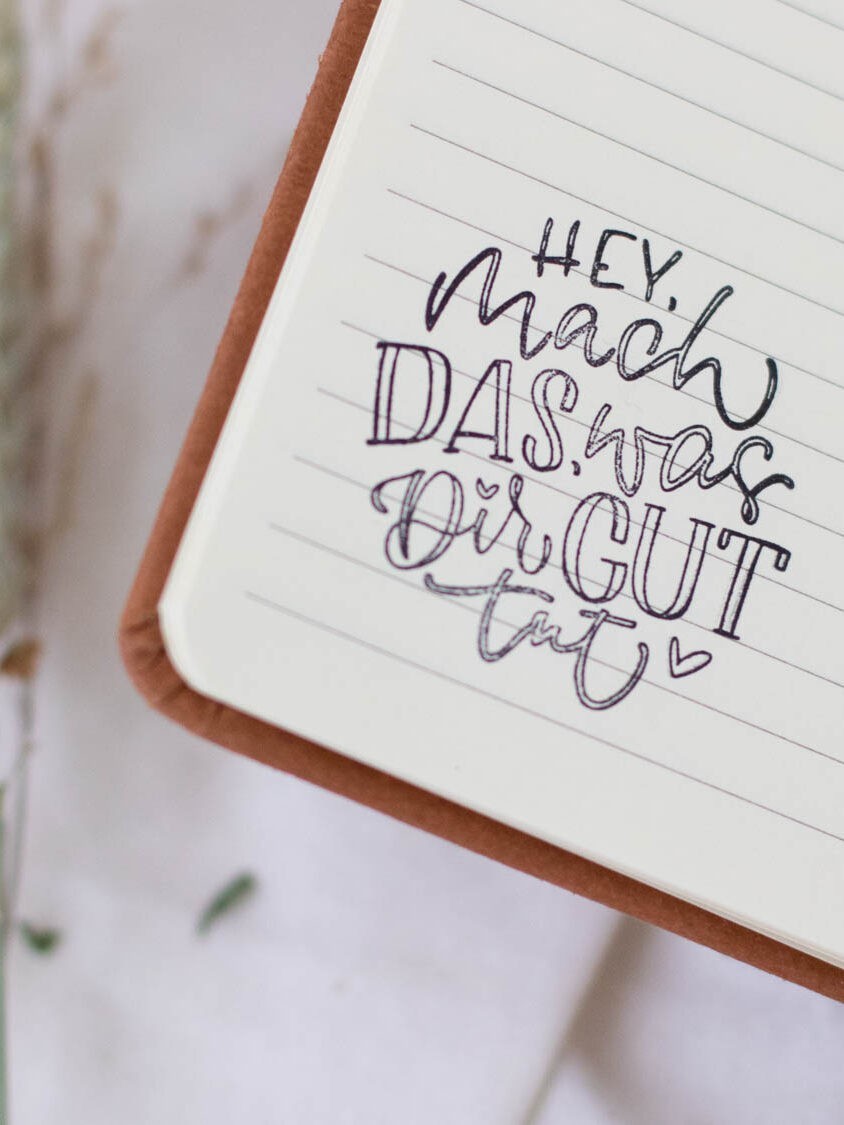 HEY,
Mach
DAS, was
Dir GUT
tut